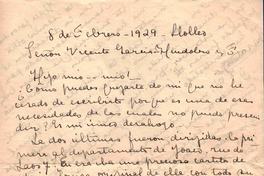 8 de Febrero - 1929 - Llolleo
Señor Vicente García Huidobro
Hijo mio - mio!
Como puedes quejarte de mi que no he
cesado de escribirte porque es una de esas
necesidades de las cuales no puedo prescin
dir? Es mi único desahogo.
Las dos últimas fueron dirigidas la pri
mera al departamento de
era una preciosa cartita de
original de ella con todo su